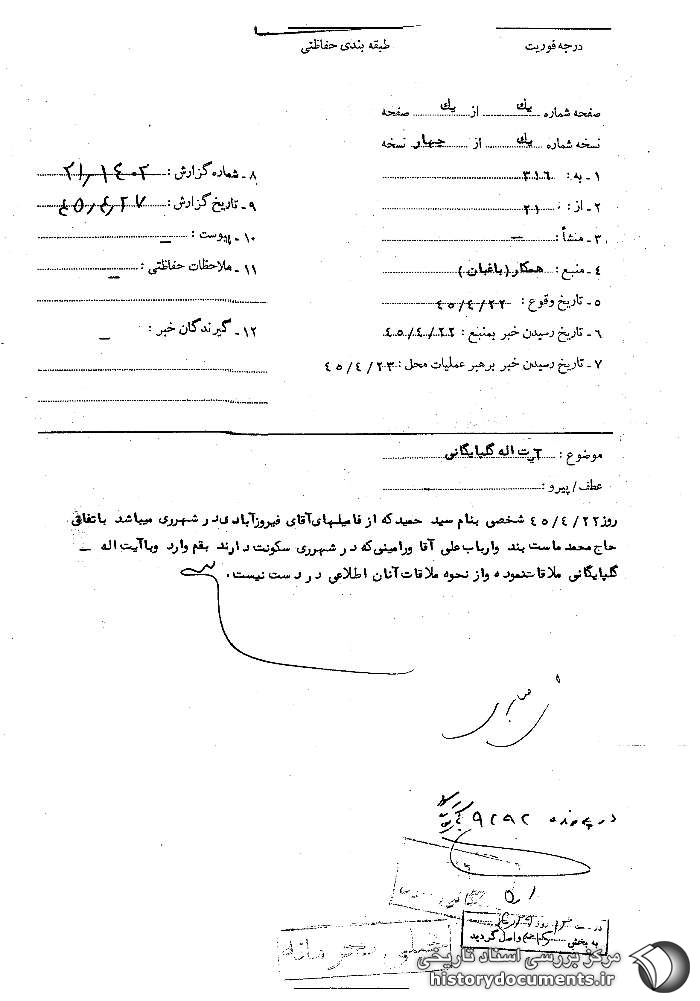 درجه فوریت
طبقه بندی حفاظتی
صفحه شماره یك از یك صفحه
نسخه شماره یك از چهار نسخه
۱ - به : ۳۱۶
۲ - از : ۲۱
۳ - منشأ : —
۴ - منبع : همکار (باغبان)
۵ - تاریخ وقوع : ۴۵/۴/۲۲
۶ - تاریخ رسیدن خبر بمنبع : ۴۵/۴/۲۲
۷ - تاریخ رسیدن خبر برهبر عملیات محل : ۴۵/۴/۲۳
۸ - شماره گزارش : ۲۱/۱۴۰۲
۹ - تاریخ گزارش : ۴۵/۴/۲۷
۱۰ - پیوست : —
۱۱ - ملاحظات حفاظتی : —
۱۲ - گیرندگان خبر : —
موضوع : آیت اله گلپایگانی
عطف / پیرو :
روز ۴۵/۴/۲۲ شخصی بنام سید حمید که از فامیلهای آقای فیروزآبادی در شهرری میباشد باتفاق
حاج محمد ماست بند و ارباب علی آقا ورامینی که در شهرری سکونت دارند بقم وارد و با آیت اله —
گلپایگانی ملاقات نموده و از نحوه ملاقات آنان اطلاعی در دست نیست .
در پرونده ۹۲۹۲
به بخش واصل گردید
خیلی محرمانه
مرکز بررسی اسناد تاریخی
historydocuments.ir